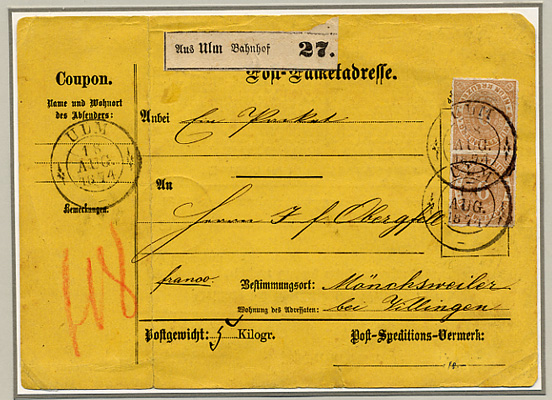 Aus Ulm Bahnhof 27.
Coupon.
Name und Wohnort
des Absenders:
ULM
16
AUG.
1874
Bemerkungen.
418
Post-Paketadresse.
Anbei Ein Packet
An
Herrn J. f. Obergfell
franco.
Bestimmungsort: Mönchsweiler
Wohnung des Adressaten: bei Villingen
Postgewicht: 5 Kilogr.
Post-Speditions-Vermerk:
ULM
AUG.
1874
ULM
AUG.
1874